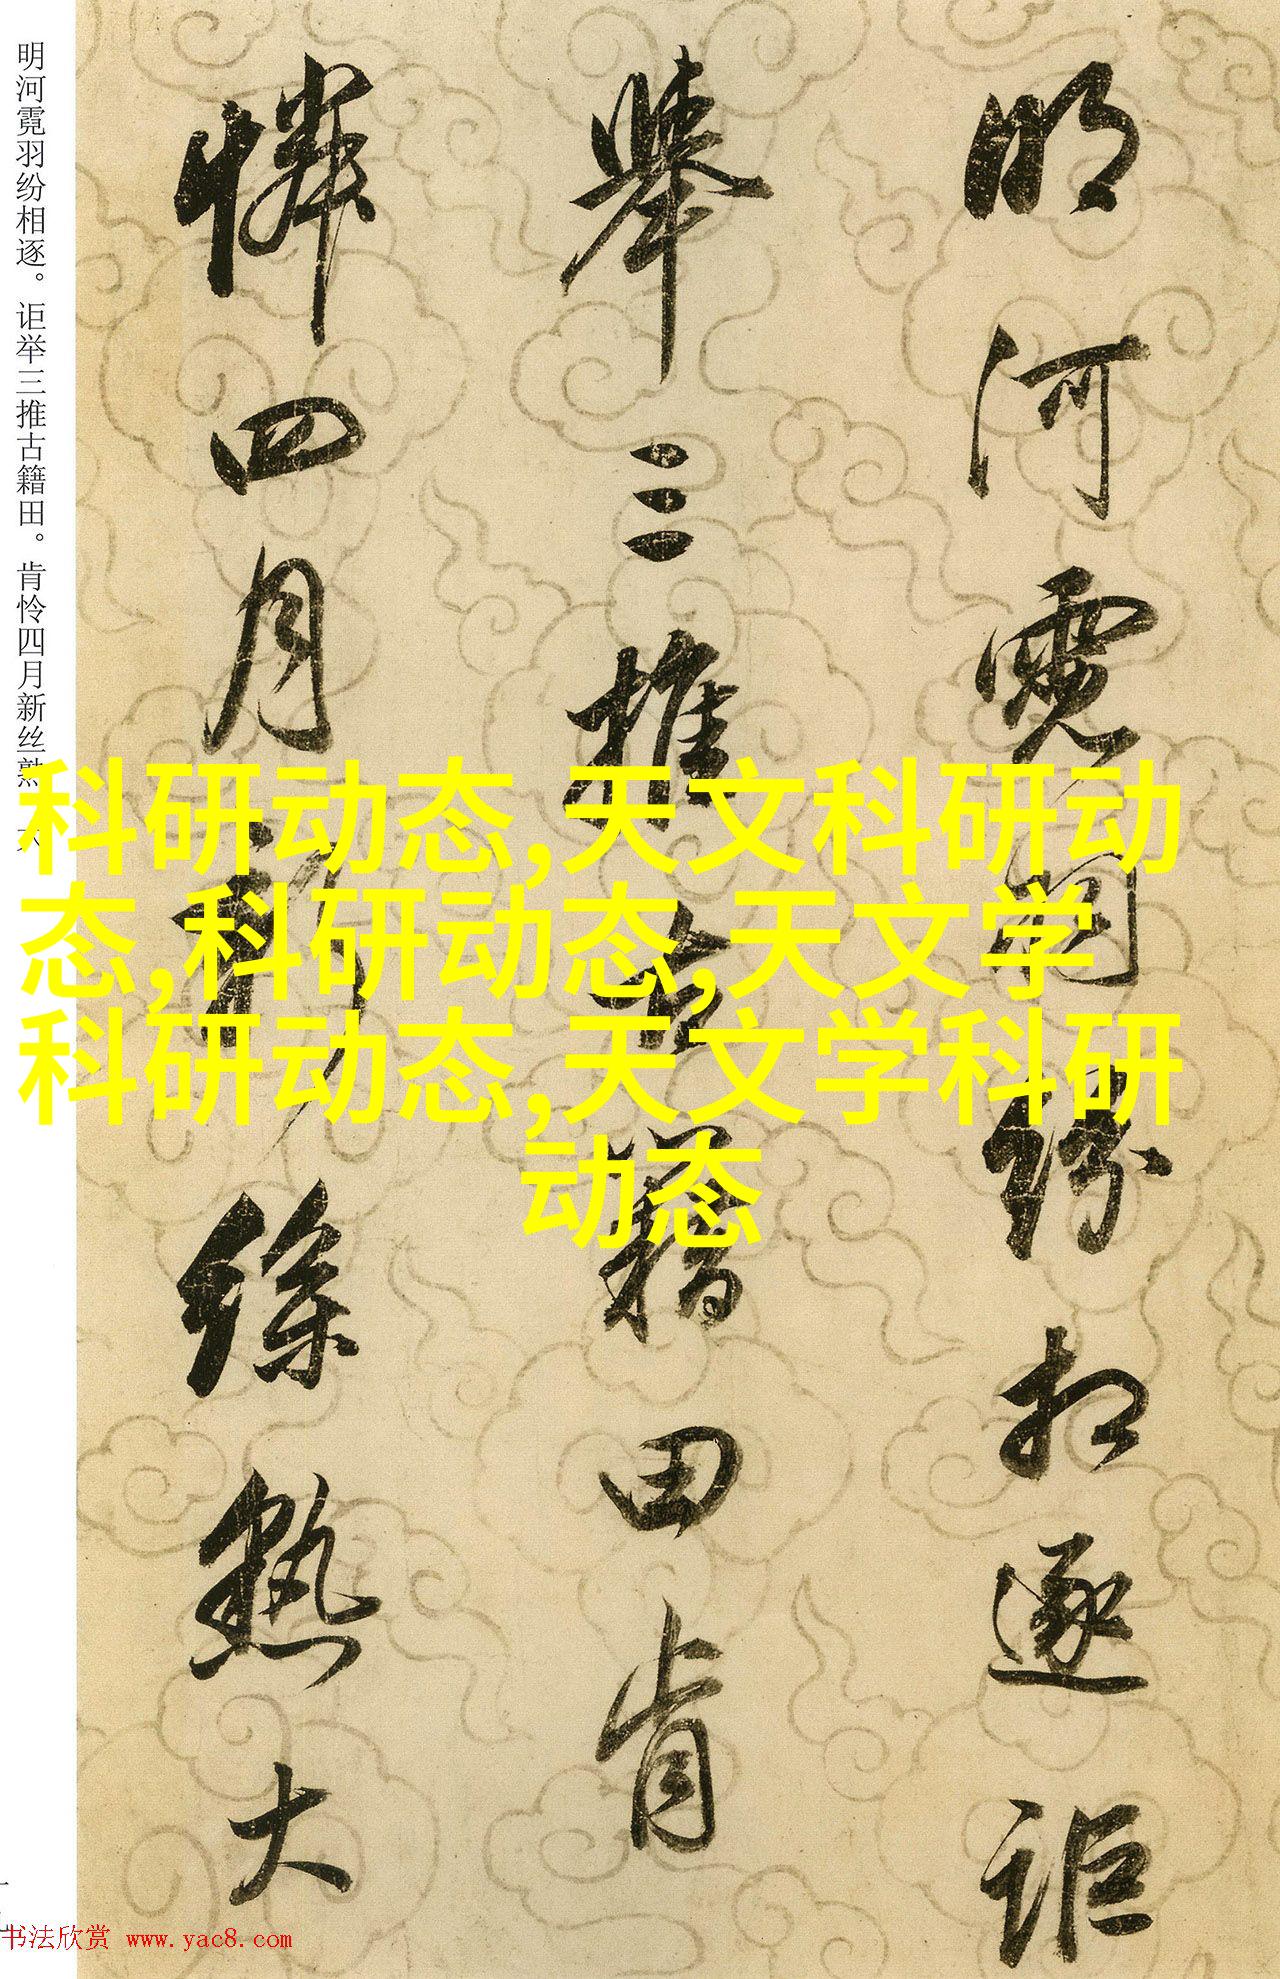 明河霓羽纷相逐。讵举三推古籍田。肯怜四月新丝熟。大
明河霓羽纷相逐讵
举三推古籍田肯
怜四月新丝熟大
科研动态,天文科研动
态,科研动态,天文学
科研动态,天文学科研
动态
书法欣赏 www.yac8.com